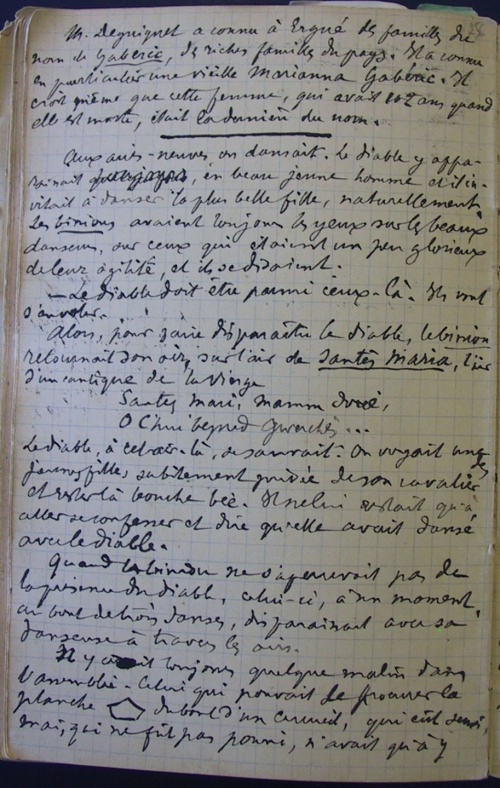 M. Déguignet a connu à Ergué des familles du
nom de Gaberic, de riches familles du pays. Il a connu
en particulier une vieille Marianna Gabéric. Il
croit même que cette femme, qui avait 102 ans quand
elle est morte, était la dernière du nom.
Aux aires-neuves, on dansait. Le diable y appa-
raissait, en beau jeune homme et il in-
vitait à danser la plus belle fille, naturellement.
Les binious avaient toujours les yeux sur les beaux
danseurs, sur ceux qui étaient un peu glorieux
de leur agilité, et ils se disaient.
— Le diable doit être parmi ceux-là. Ils vont
s'envoler.
Alors, pour faire disparaître le diable, le biniou
retournait son air, sur l'air de Santes Maria, l'air
d'un cantique de la Vierge
Santes Mari, mamm Doué,
O C'hui beped
Le diable, à cet air-là, se sauvait. On voyait une des
jeunes filles subitement privée de son cavalier
et rester là bouche bée. Il ne lui restait qu'à
aller se confesser et dire qu'elle avait dansé
avec le diable.
Quand le biniou ne s'apercevait pas de
la présence du diable, celui-ci, à un moment,
au bout de trois danses, disparaissait avec sa
danseuse à travers les airs.
Il y avait toujours quelque malin dans
l'assemblée. Celui qui pouvait se procurer la
planche du bout d'un cercueil, qui eût servi,
mais, qui ne fût pas pourri, n'avait qu'à y